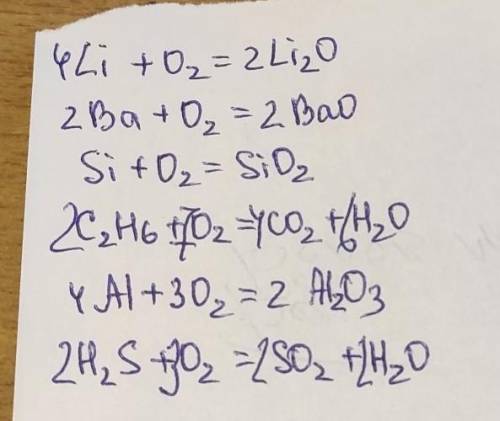 4Li + O₂ = 2Li₂O
2Ba + O₂ = 2BaO
Si + O₂ = SiO₂
2C₂H6 + 7O₂ = 4CO₂ + 6H₂O
4Al + 3O₂ = 2Al₂O₃
2H₂S + 3O₂ = 2SO₂ + 2H₂O